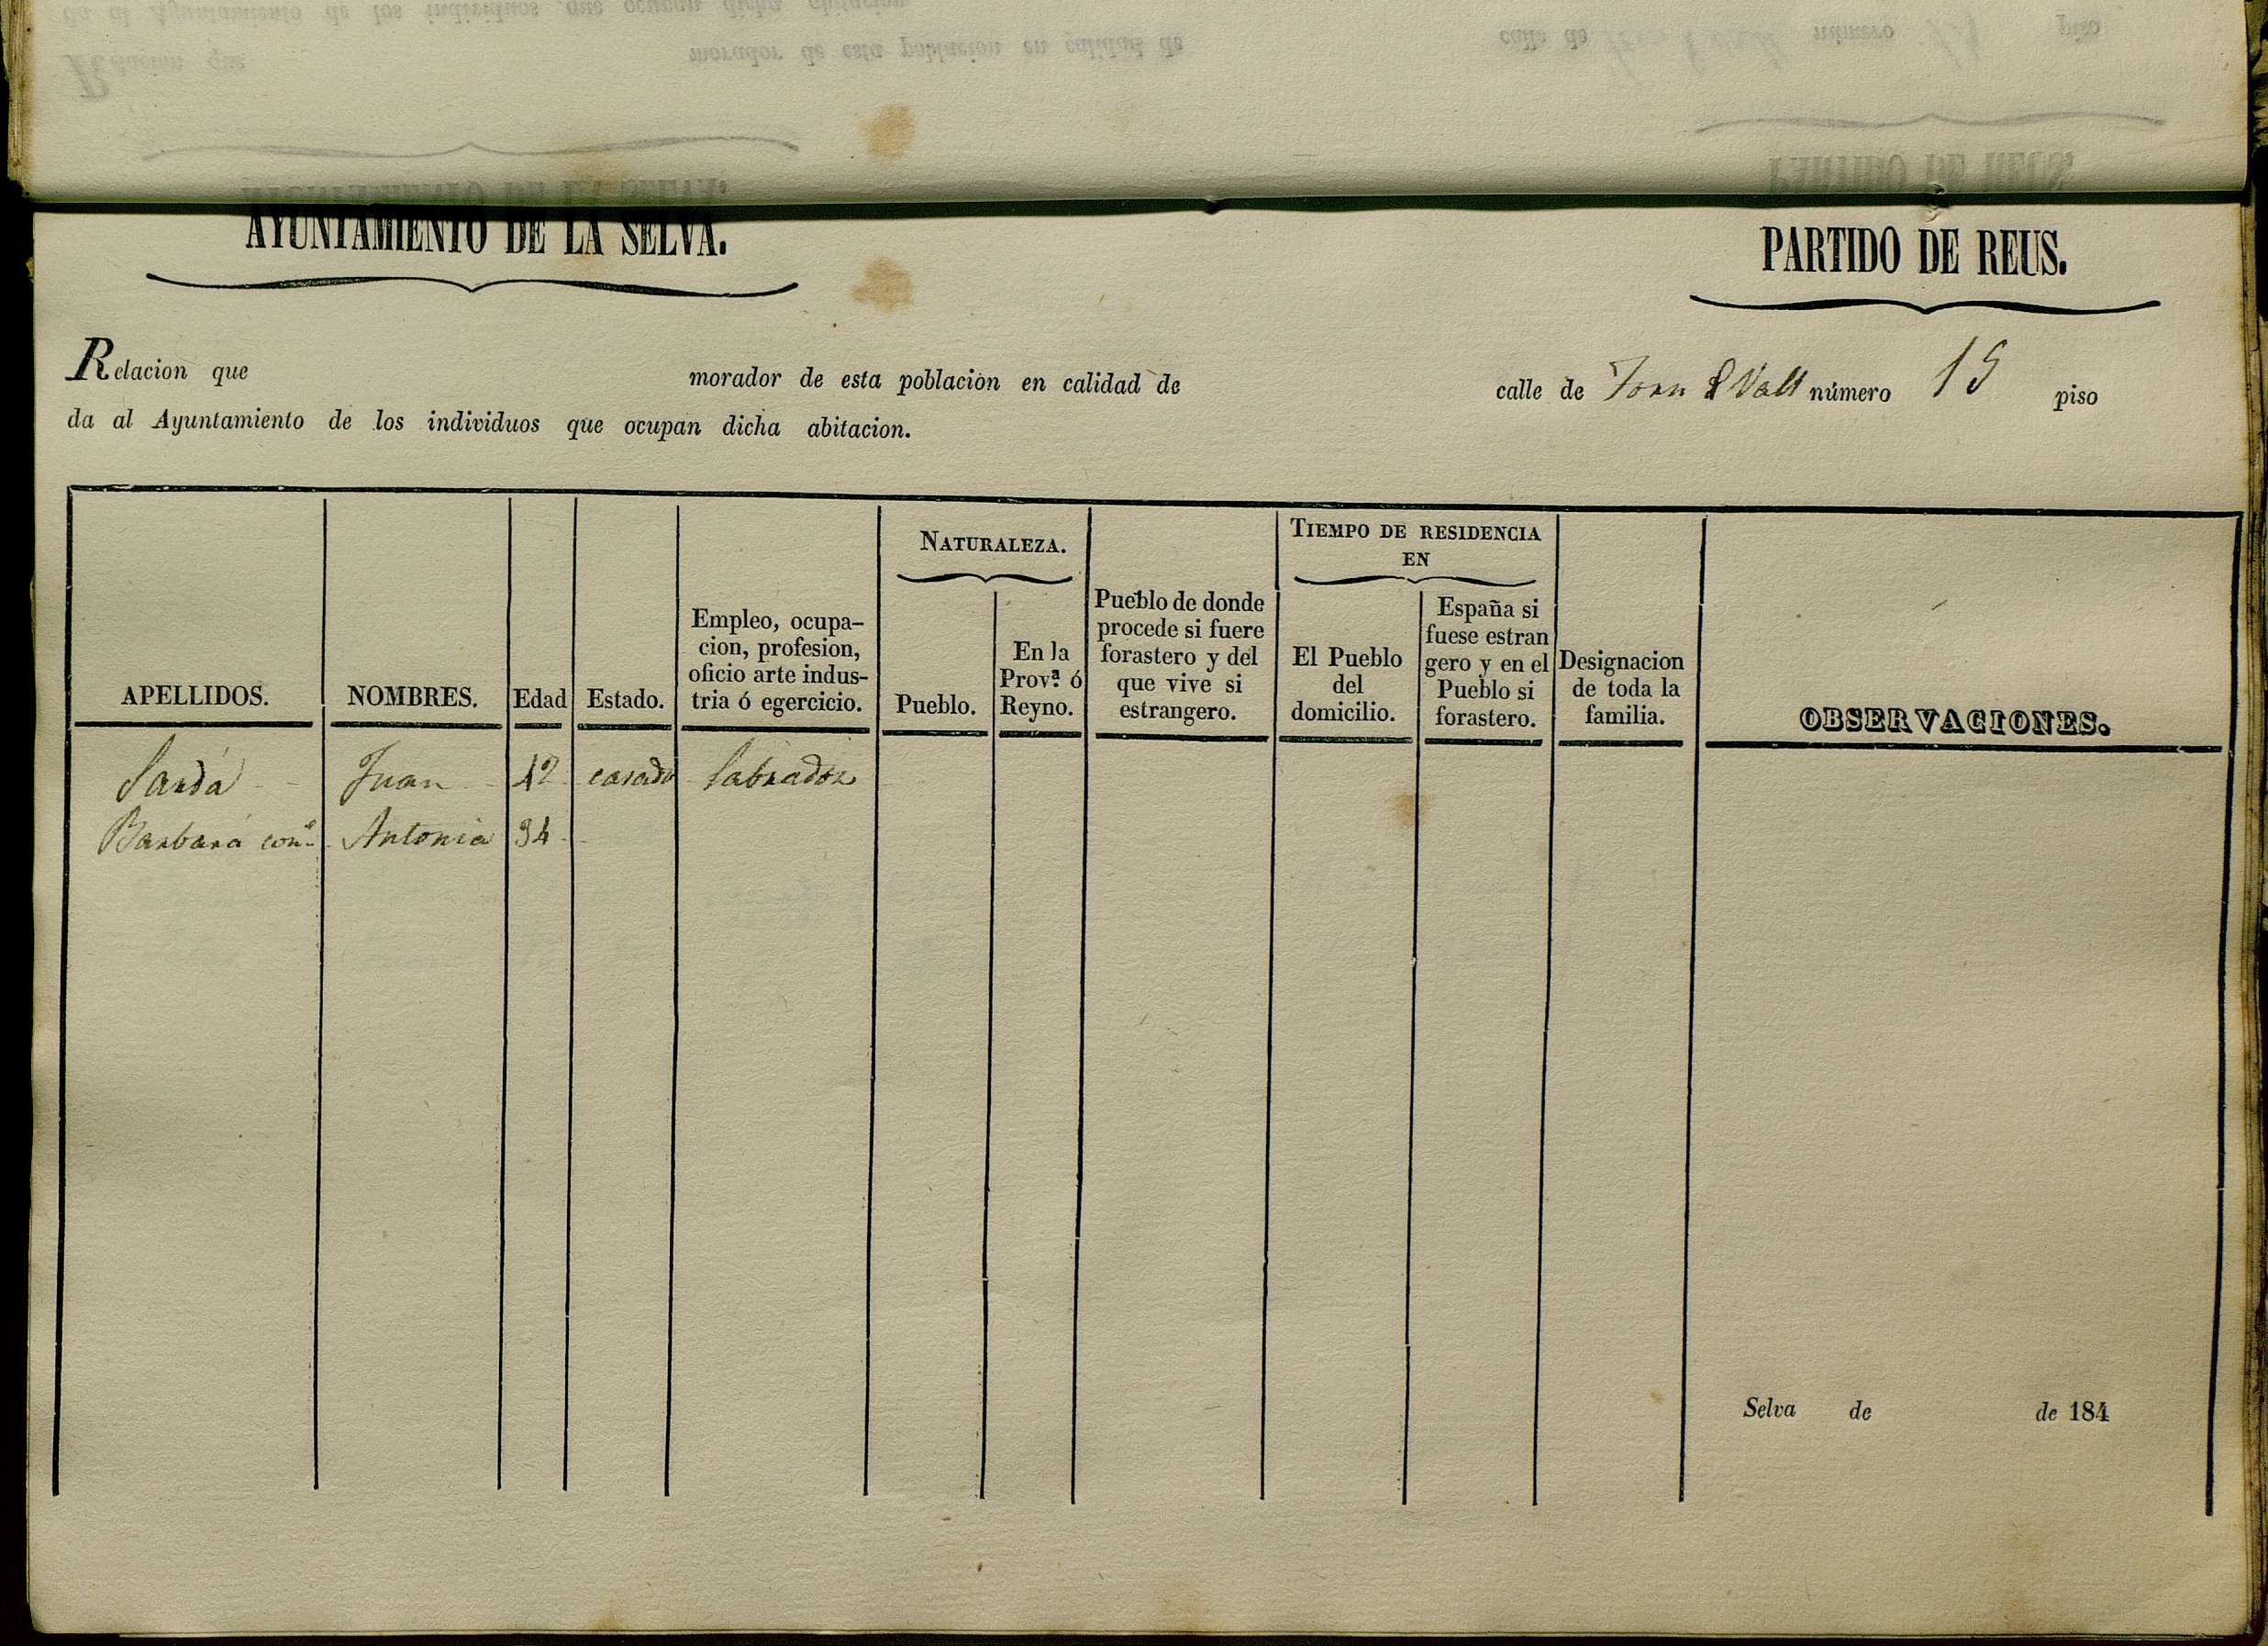 AYUNTAMIENTO DE LA SELVA.
PARTIDO DE REUS.
Relacion que morador de esta poblacion en calidad de calle de número 15 piso
da al Ayuntamiento de los individuos que ocupan dicha abitacion.
APELLIDOS.
NOMBRES.
Edad
Estado.
Empleo, ocupa-
cion, profesion,
oficio arte indus-
tria ó egercicio.
NATURALEZA.
Pueblo.
En la
Prov.ª ó
Reyno.
Pueblo de donde
procede si fuere
forastero y del
que vive si
estrangero.
TIEMPO DE RESIDENCIA
EN
El Pueblo
del
domicilio.
España si
fuese estran
gero y en el
Pueblo si
forastero.
Designacion
de toda la
familia.
OBSERVACIONES.
Sardá Juan 42 casado labrador
Barbará con.e Antonia 34
Selva de de 184